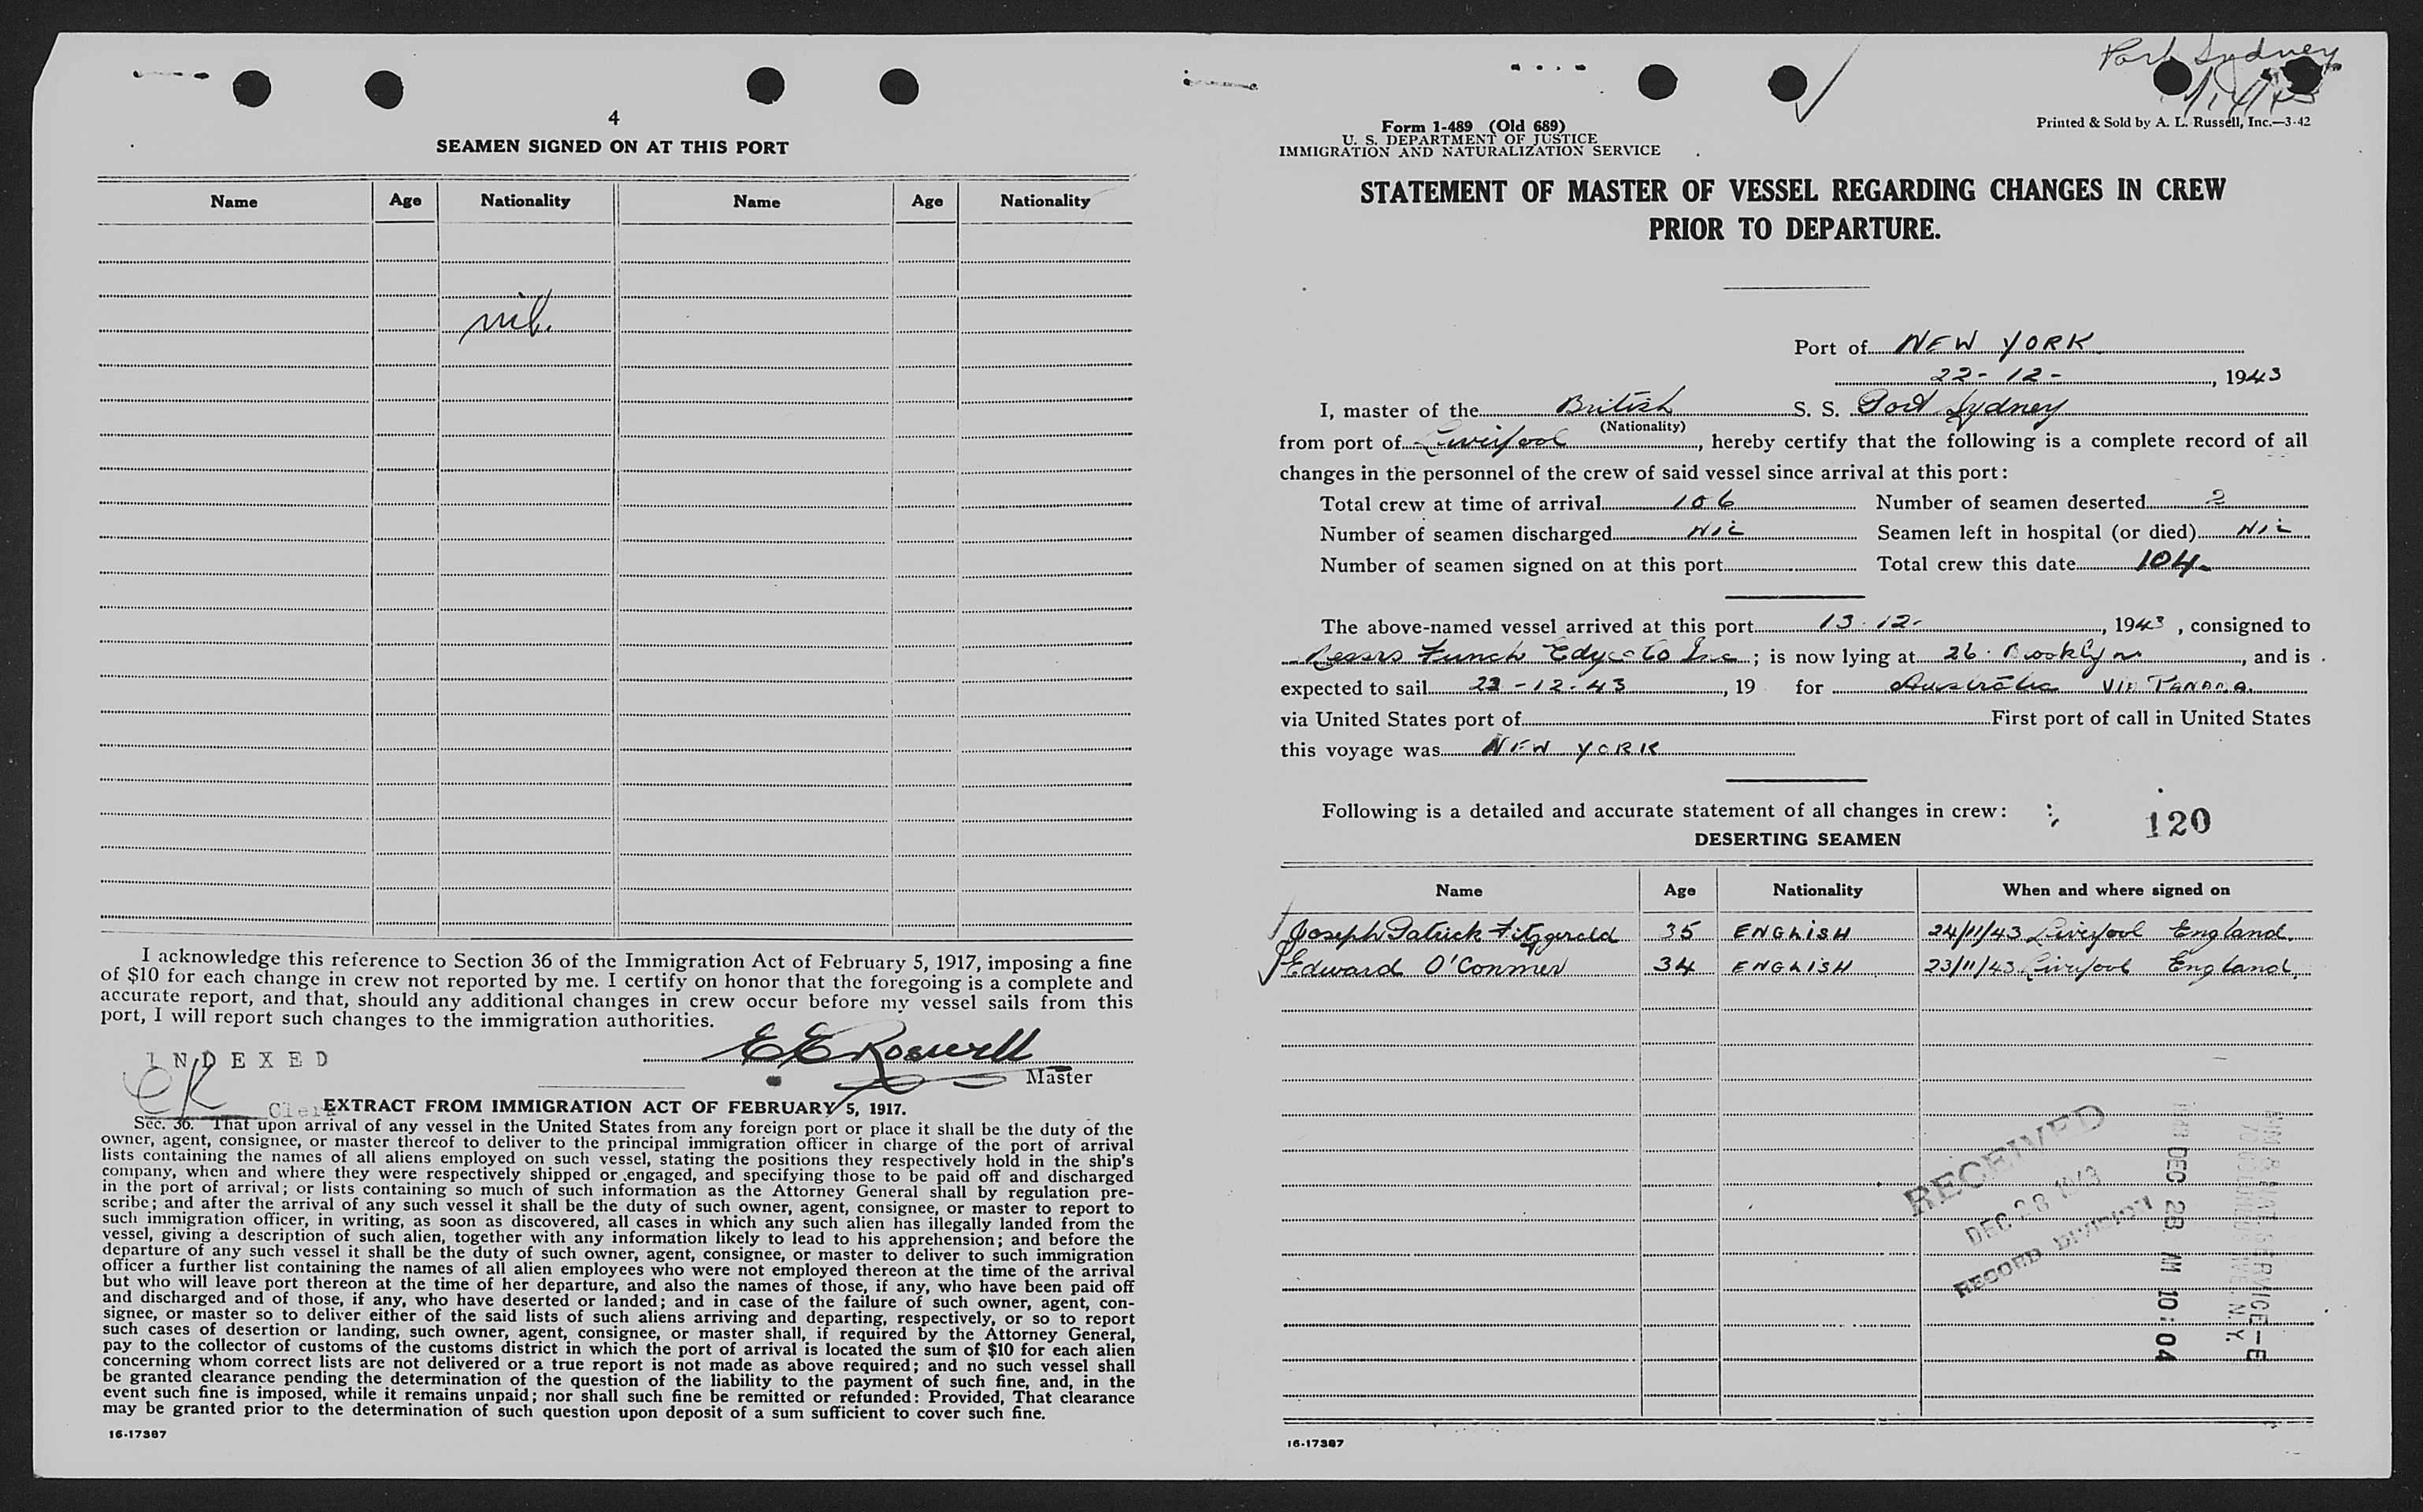 4
SEAMEN SIGNED ON AT THIS PORT
Name Age Nationality Name Age Nationality
nil.
I acknowledge this reference to Section 36 of the Immigration Act of February 5, 1917, imposing a fine
of $10 for each change in crew not reported by me. I certify on honor that the foregoing is a complete and
accurate report, and that, should any additional changes in crew occur before my vessel sails from this
port, I will report such changes to the immigration authorities.
INDEXED
Master
Clerk
EXTRACT FROM IMMIGRATION ACT OF FEBRUARY 5, 1917.
Sec. 36. That upon arrival of any vessel in the United States from any foreign port or place it shall be the duty of the
owner, agent, consignee, or master thereof to deliver to the principal immigration officer in charge of the port of arrival
lists containing the names of all aliens employed on such vessel, stating the positions they respectively hold in the ship's
company, when and where they were respectively shipped or engaged, and specifying those to be paid off and discharged
in the port of arrival; or lists containing so much of such information as the Attorney General shall by regulation pre-
scribe; and after the arrival of any such vessel it shall be the duty of such owner, agent, consignee, or master to report to
such immigration officer, in writing, as soon as discovered, all cases in which any such alien has illegally landed from the
vessel, giving a description of such alien, together with any information likely to lead to his apprehension; and before the
departure of any such vessel it shall be the duty of such owner, agent, consignee, or master to deliver to such immigration
officer a further list containing the names of all alien employees who were not employed thereon at the time of the arrival
but who will leave port thereon at the time of her departure, and also the names of those, if any, who have been paid off
and discharged and of those, if any, who have deserted or landed; and in case of the failure of such owner, agent, con-
signee, or master so to deliver either of the said lists of such aliens arriving and departing, respectively, or so to report
such cases of desertion or landing, such owner, agent, consignee, or master shall, if required by the Attorney General,
pay to the collector of customs of the customs district in which the port of arrival is located the sum of $10 for each alien
concerning whom correct lists are not delivered or a true report is not made as above required; and no such vessel shall
be granted clearance pending the determination of the question of the liability to the payment of such fine, and, in the
event such fine is imposed, while it remains unpaid; nor shall such fine be remitted or refunded: Provided, That clearance
may be granted prior to the determination of such question upon deposit of a sum sufficient to cover such fine.
16-17387
Port Sydney
Form 1-489 (Old 689)
U. S. DEPARTMENT OF JUSTICE
IMMIGRATION AND NATURALIZATION SERVICE
Printed & Sold by A. L. Russell, Inc.—3-42
STATEMENT OF MASTER OF VESSEL REGARDING CHANGES IN CREW
PRIOR TO DEPARTURE.
Port of NEW YORK
22-12-, 1943
I, master of the British S. S. Port Sydney
(Nationality)
from port of Liverpool, hereby certify that the following is a complete record of all
changes in the personnel of the crew of said vessel since arrival at this port:
Total crew at time of arrival 106 Number of seamen deserted 2
Number of seamen discharged NIL Seamen left in hospital (or died) NIL
Number of seamen signed on at this port Total crew this date 104
The above-named vessel arrived at this port 13.12., 1943, consigned to
Funch Edye & Co Inc; is now lying at 26 Brooklyn, and is
expected to sail 22-12-43, 19 for Australia VIA PANAMA
via United States port of First port of call in United States
this voyage was NEW YORK
Following is a detailed and accurate statement of all changes in crew:
120
DESERTING SEAMEN
Name Age Nationality When and where signed on
Joseph Patrick Fitzgerald 35 ENGLISH 24/11/43 Liverpool England.
Edward O'Connor 34 ENGLISH 23/11/43 Liverpool England.
RECEIVED
DEC 28 1943
RECORD DIVISION
1943 DEC 28 AM 10:04
16-17387